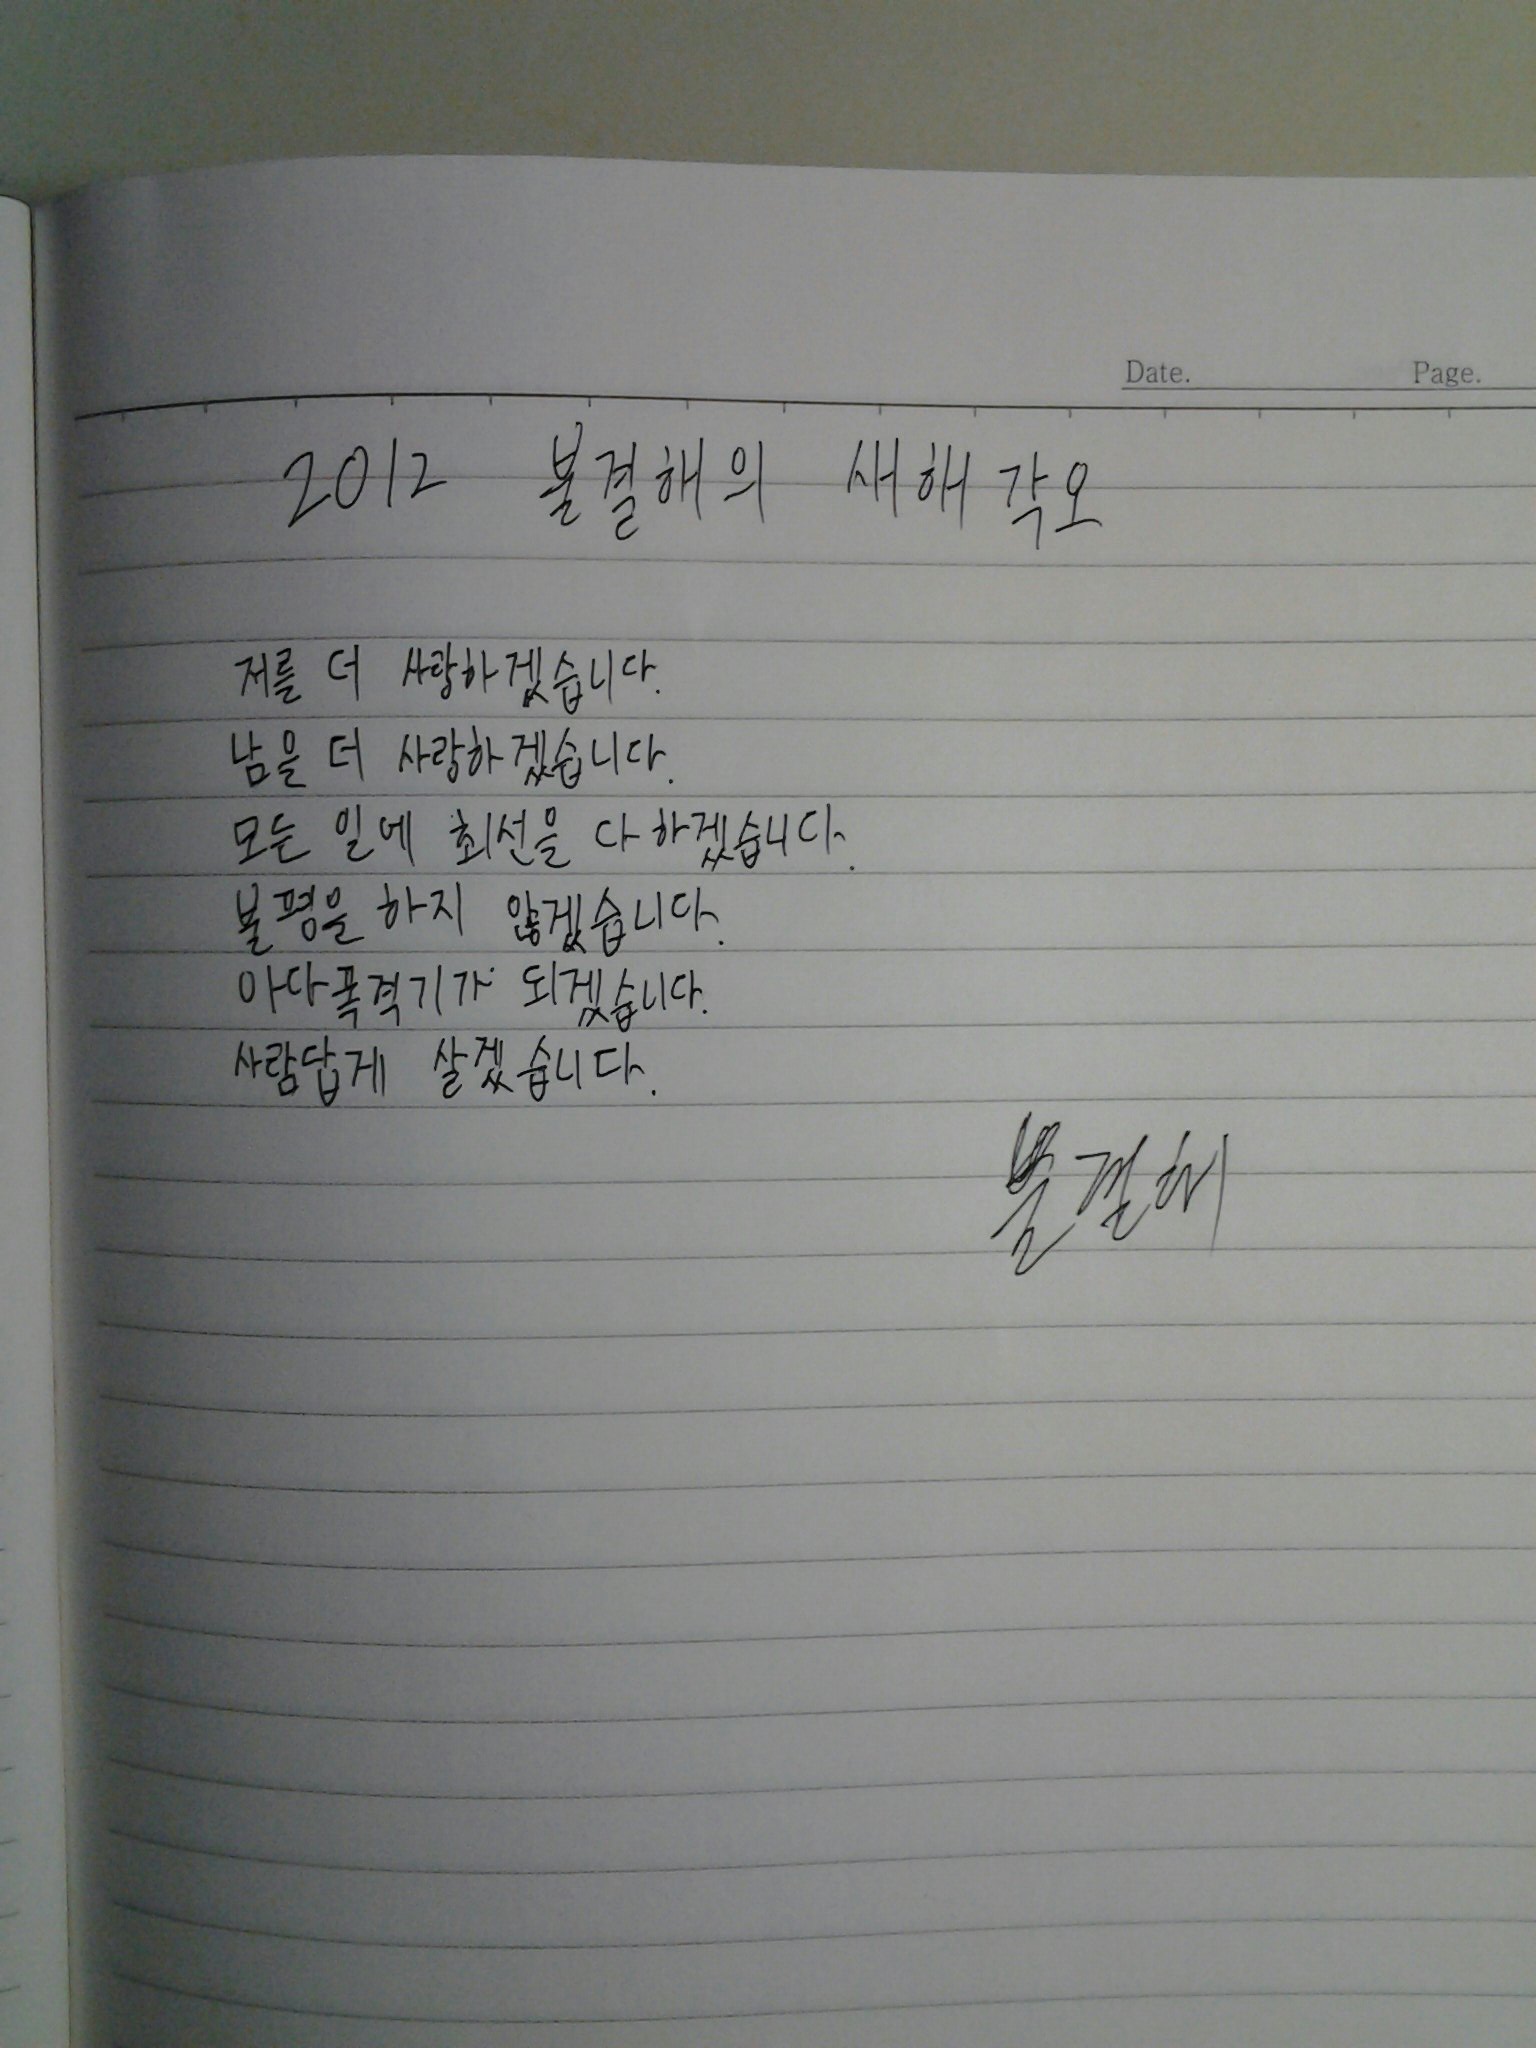 Date. Page.
2012 불결해의 새해 각오
저를 더 사랑하겠습니다.
남을 더 사랑하겠습니다.
모든 일에 최선을 다하겠습니다.
불평을 하지 않겠습니다.
아다폭격기가 되겠습니다.
사람답게 살겠습니다.
불결해